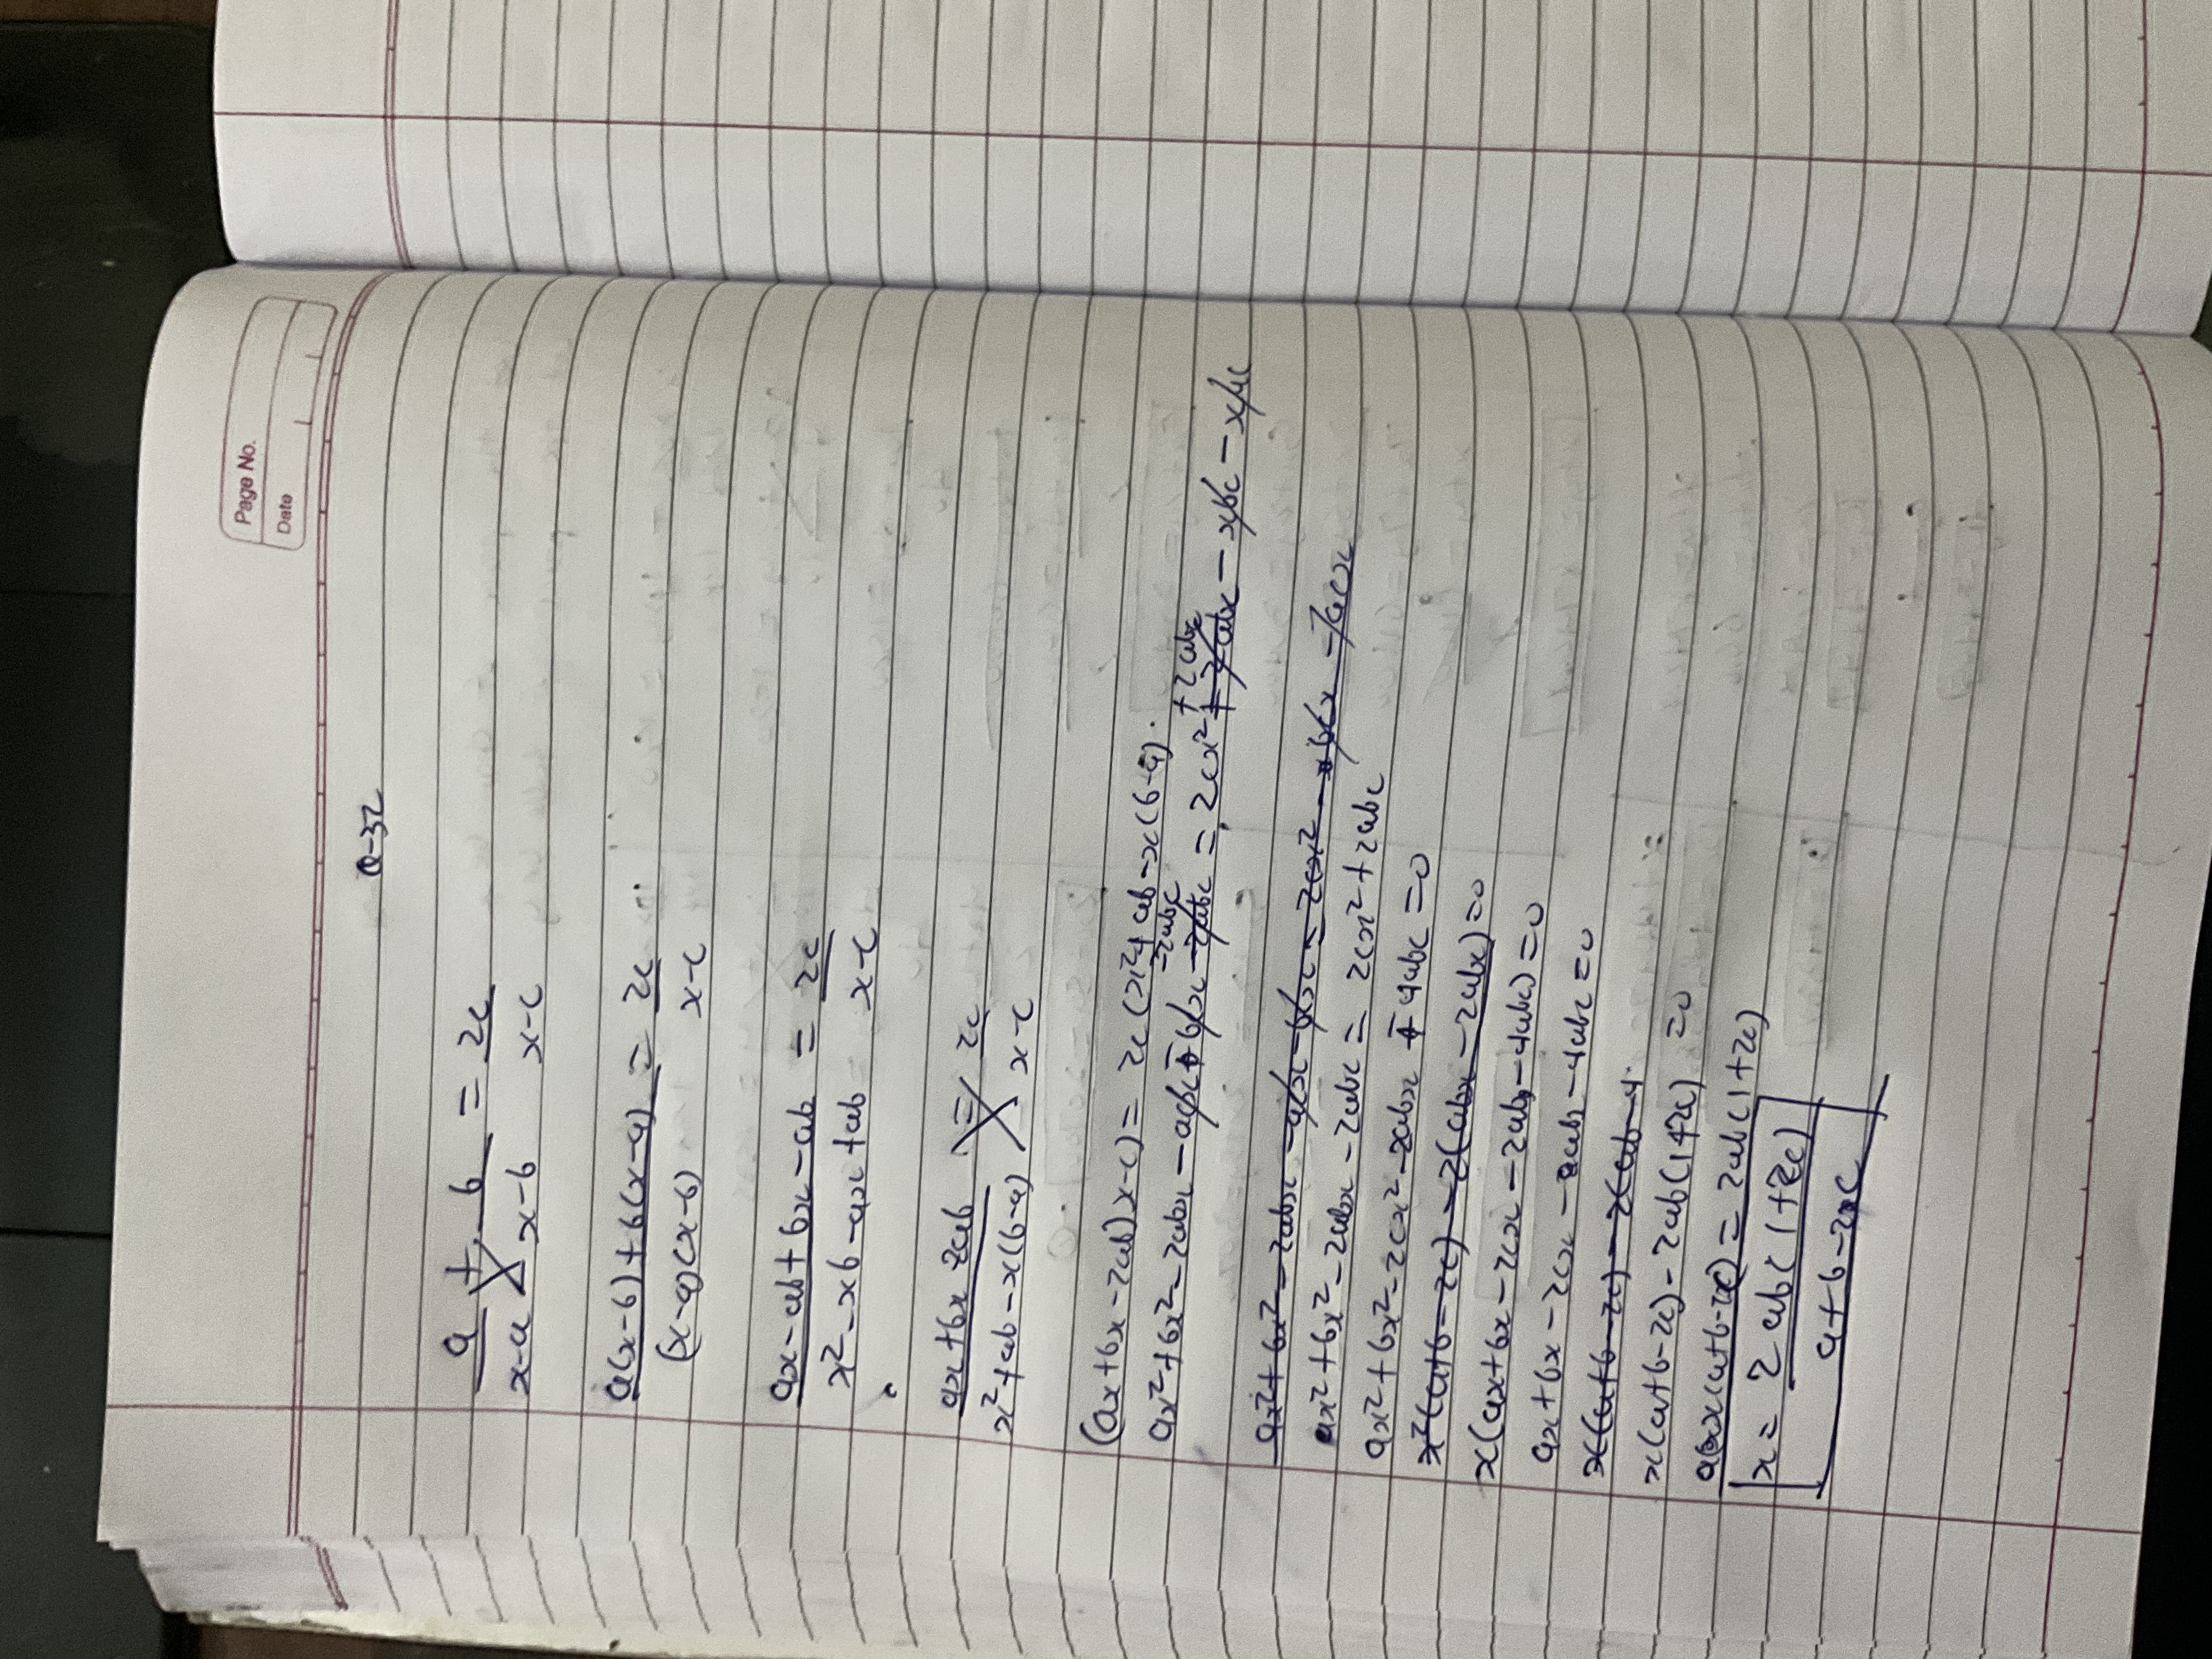 Page No.
Date
Q-32
a/(x-a) + b/(x-b) = 2c/(x-c)
(a(x-b) + b(x-a))/((x-a)(x-b)) = 2c/(x-c)
(ax-ab+bx-ab)/(x²-xb-ax+ab) = 2c/(x-c)
(ax+bx-2ab)/(x²+ab-x(b-a)) = 2c/(x-c)
(ax+bx-2ab)(x-c) = 2c(x²+ab-x(b-a)).
ax²+bx²-2abx - acx - bcx - 2abc = 2cx² + 2abc
ax²+bx²-2abx-2abc = 2cx²+2abc
ax²+bx²-2cx²-2abx - 4abc = 0
x(ax+bx-2cx-2ab-4abc) = 0
ax+bx-2cx-2ab-4abc = 0
x(a+b-2c)-2ab(1+2c) = 0
x(a+b-2c) = 2ab(1+2c)
x = 2ab(1+2c)/(a+b-2c)